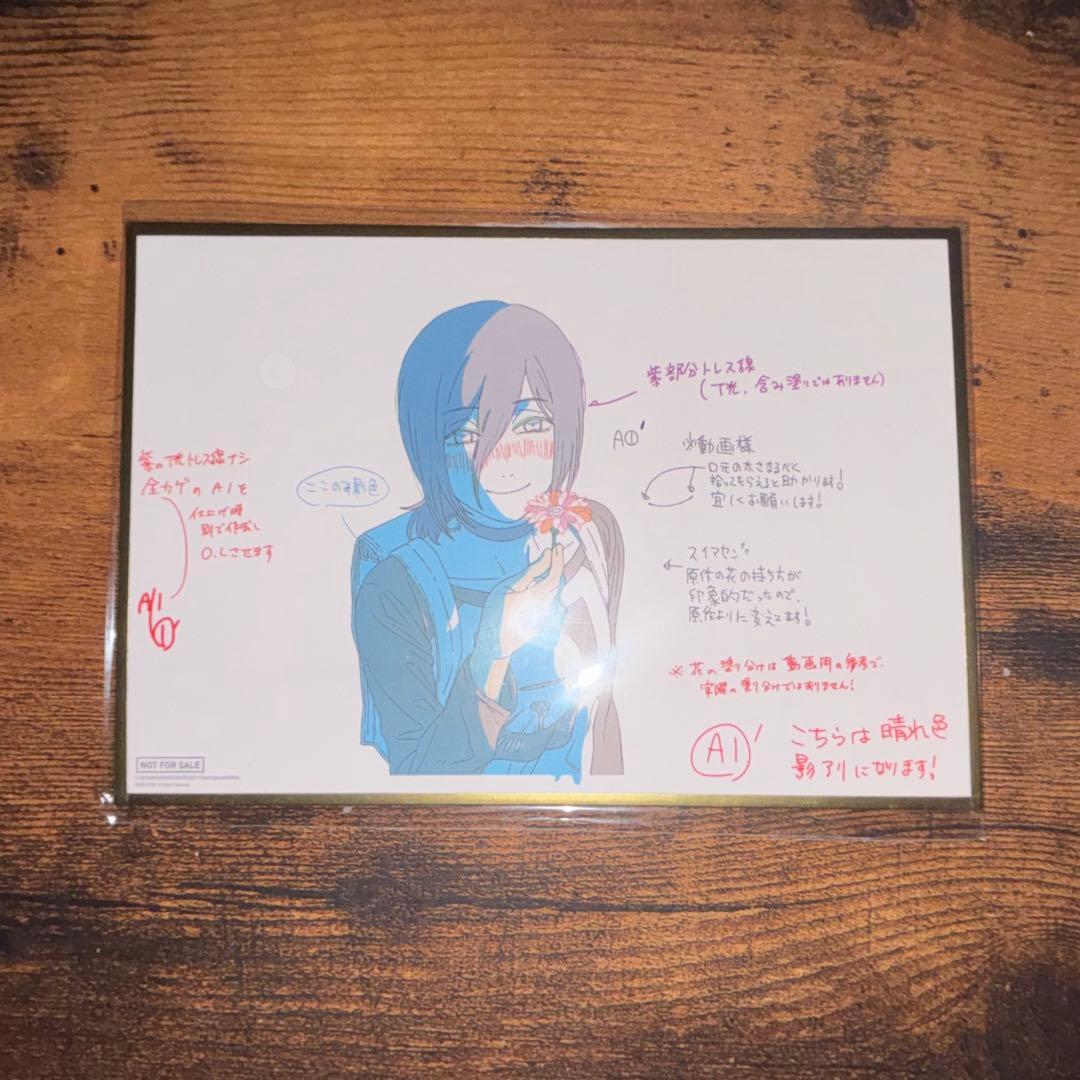 紫部分トレス線
(T光、含み塗りではありません)
A①'
※動画様
口元の太さなるべく
拾ってもらえると助かります!
宜しくお願いします!
紫のT光トレス線ナシ
全カゲのA1を
仕上げ時
別で作成し
O.Lさせます
A1
①
ここの影色
スイマセン
原作の花の持ち方が
印象的だったので、
原作よりに変えてます!
※花の塗り分けは動画用の参考で
実際の塗り分けではありません!
A1'
こちらは晴れ色
影アリになります!
NOT FOR SALE